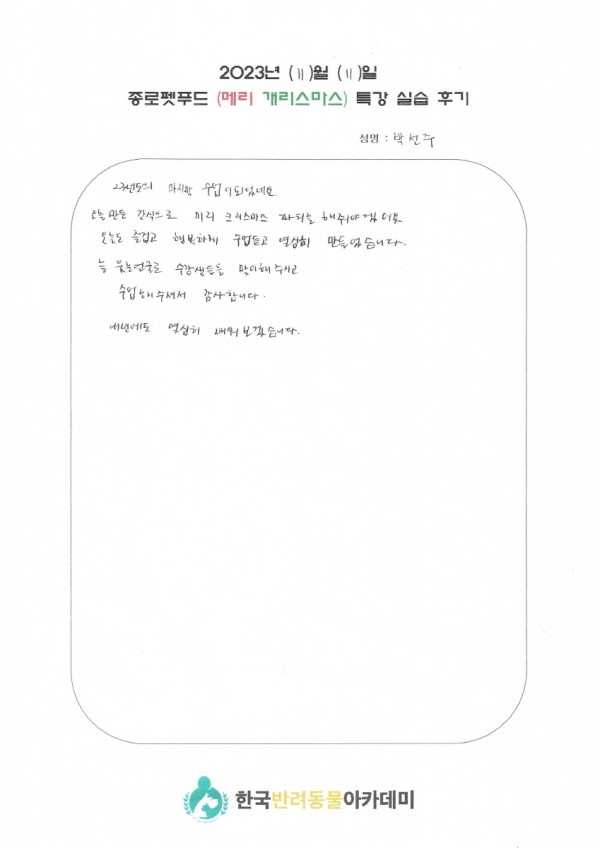 2023년 (11)월 (11)일
종로펫푸드 (메리 개리스마스) 특강 실습 후기
성명 : 박선주
23년도의 마지막 수업이 되었네요
오늘 만든 간식으로 미리 크리스마스 파티를 해줘야겠어요
오늘도 즐겁고 행복하게 수업듣고 열심히 만들었습니다.
늘 웃는얼굴로 수강생들을 맞이해 주시고
수업해주셔서 감사합니다.
내년에도 열심히 배워보겠습니다.
한국반려동물아카데미